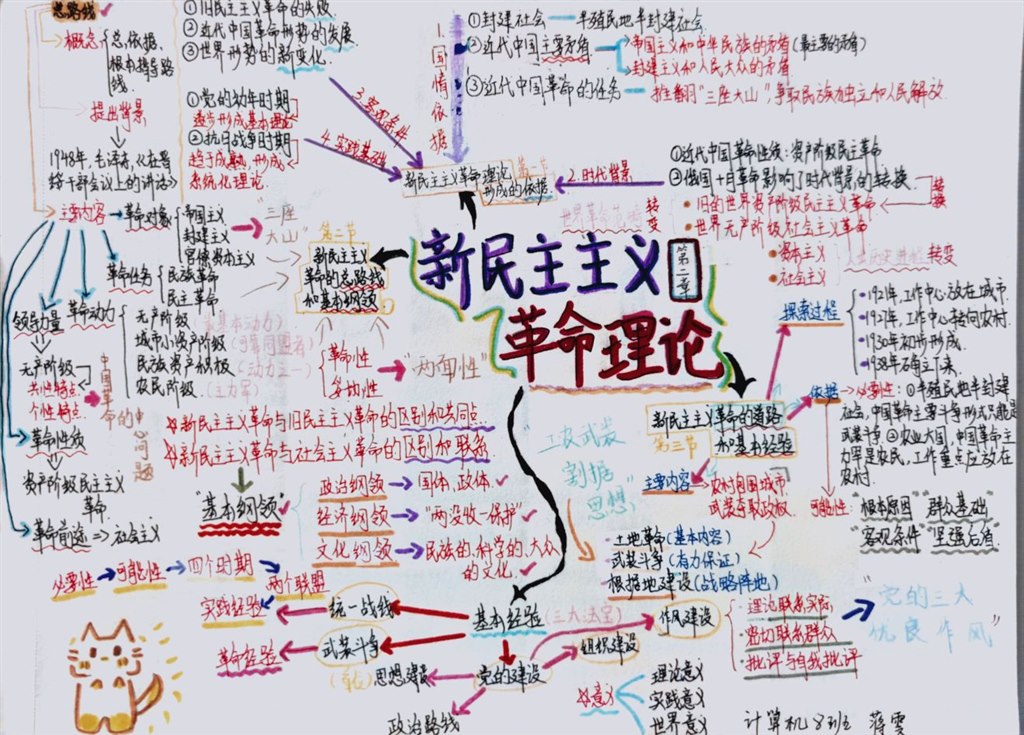 总路线
概念
总依据、
根本指导路
线.
提出背景
1948年，毛泽东《在晋
绥干部会议上的讲话》
主要内容
革命对象
帝国主义
封建主义
官僚资本主义
"三座
大山"
革命任务
民族革命
民主革命
领导力量
革命动力
无产阶级
城市小资产阶级
民族资产积极
农民阶级
无产阶级
共性特点.
个性特点.
中国革命的中心问题
革命性质
资产阶级民主主义
革命.
革命前途=>社会主义
①旧民主主义革命的失败
②近代中国革命形势的发展
③世界形势的新变化.
3.客观条件
①党的幼年时期
逐步形成基本理论
②抗日战争时期
趋于成熟，形成
系统化理论.
4.实践基础
1.国情依据
①封建社会—半殖民地半封建社会
②近代中国主要矛盾
帝国主义和中华民族的矛盾(最主要的矛盾)
封建主义和人民大众的矛盾
③近代中国革命的任务
推翻"三座大山"，争取民族独立和人民解放.
新民主主义革命理论
形成的依据.
第一节
2.时代背景
①近代中国革命性质：资产阶级民主革命
②俄国十月革命影响了时代背景的转换.
旧的世界资产阶级民主主义革命
世界无产阶级社会主义革命
转换
转变
资本主义
社会主义
转变
第二节
新民主主义
革命的总路线
和基本纲领
新民主主义
第二章
革命理论
革命性
妥协性
"两面性"
新民主主义革命与旧民主主义革命的区别和共同点
新民主主义革命与社会主义革命的区别和联系
"基本纲领"
政治纲领
国体、政体.
经济纲领
"两没收一保护"
文化纲领
民族的、科学的、大众
的文化.
新民主主义革命的道路
和基本经验
第三节
探索过程
1921年，工作中心放在城市.
1927年，工作中心转向农村.
1930年初步形成.
1938年确立下来.
依据
必要性：①半殖民地半封建
社会，中国革命主要斗争形式只能是
武装斗争.②农业大国，中国革命主
力军是农民，工作重点应放在
农村.
可能性：
"根本原因" "群众基础"
"客观条件" "坚强后盾"
主要内容
农村包围城市，
武装夺取政权.
"工农武装
割据
思想"
土地革命(基本内容)
武装斗争(有力保证)
根据地建设(战略阵地)
必要性
可能性
四个时期
两个联盟
实践经验
统一战线
革命经验
武装斗争
基本经验
(三大法宝)
党的建设
思想建设
政治路线
组织建设
作风建设
理论联系实际
密切联系群众
批评与自我批评
"党的三大
优良作风"
意义
理论意义
实践意义
世界意义
计算机8班 蒋雯